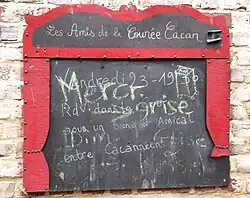 Les Amis de la Tournée Cacan
Vendredi 23-19
Merci
Rdv dans la
grise
pour un Amical
entre Cacannecht